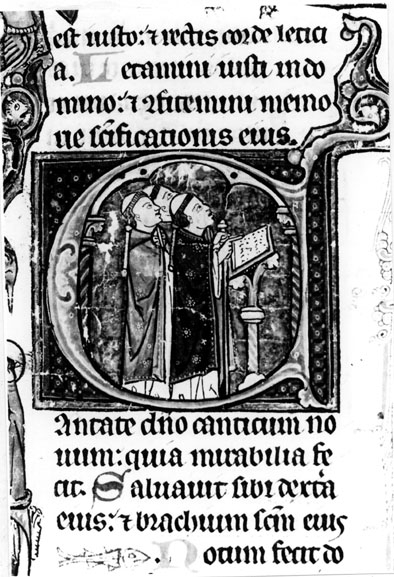 est iusto: ⁊ rectis corde letici
a. Letamini iusti in do
mino: ⁊ ꝯfitemini memo
rie sc̄ificationis eius.
Cantate dn̄o canticum no
uum: quia mirabilia fe
cit. Saluauit sibi dext̄a
eius: ⁊ brachium sc̄m eius
. Notum fecit do